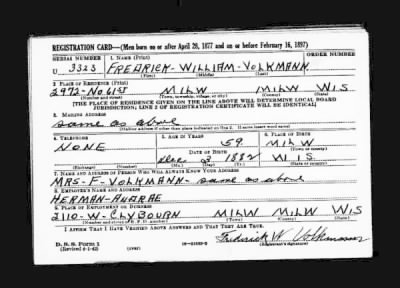 REGISTRATION CARD—(Men born on or after April 28, 1877 and on or before February 16, 1897)
SERIAL NUMBER 1. NAME (Print) ORDER NUMBER
U 3323 FREDRICK - WILLIAM - VOLKMANN
(First) (Middle) (Last)
2. PLACE OF RESIDENCE (Print)
2972 - No 61 ST MILW MILW WIS
(Number and street) (Town, township, village, or city) (County) (State)
[THE PLACE OF RESIDENCE GIVEN ON THE LINE ABOVE WILL DETERMINE LOCAL BOARD
JURISDICTION; LINE 2 OF REGISTRATION CERTIFICATE WILL BE IDENTICAL]
3. MAILING ADDRESS
same as above
(Mailing address if other than place indicated on line 2. If same insert word same)
4. TELEPHONE 5. AGE IN YEARS 6. PLACE OF BIRTH
NONE 59 MILW
DATE OF BIRTH (Town or county)
Dec 3 1882 WIS
(Exchange) (Number) (Mo.) (Day) (Yr.) (State or country)
7. NAME AND ADDRESS OF PERSON WHO WILL ALWAYS KNOW YOUR ADDRESS
MRS - F - VOLKMANN - same as above
8. EMPLOYER'S NAME AND ADDRESS
HERMAN -
9. PLACE OF EMPLOYMENT OR BUSINESS
2110 - W - CLYBOURN MILW MILW WIS
(Number and street or R. F. D. number) (Town) (County) (State)
I AFFIRM THAT I HAVE VERIFIED ABOVE ANSWERS AND THAT THEY ARE TRUE.
D. S. S. Form 1
(Revised 4-1-42) (over)
Fredrick W Volkmann
(Registrant's signature)